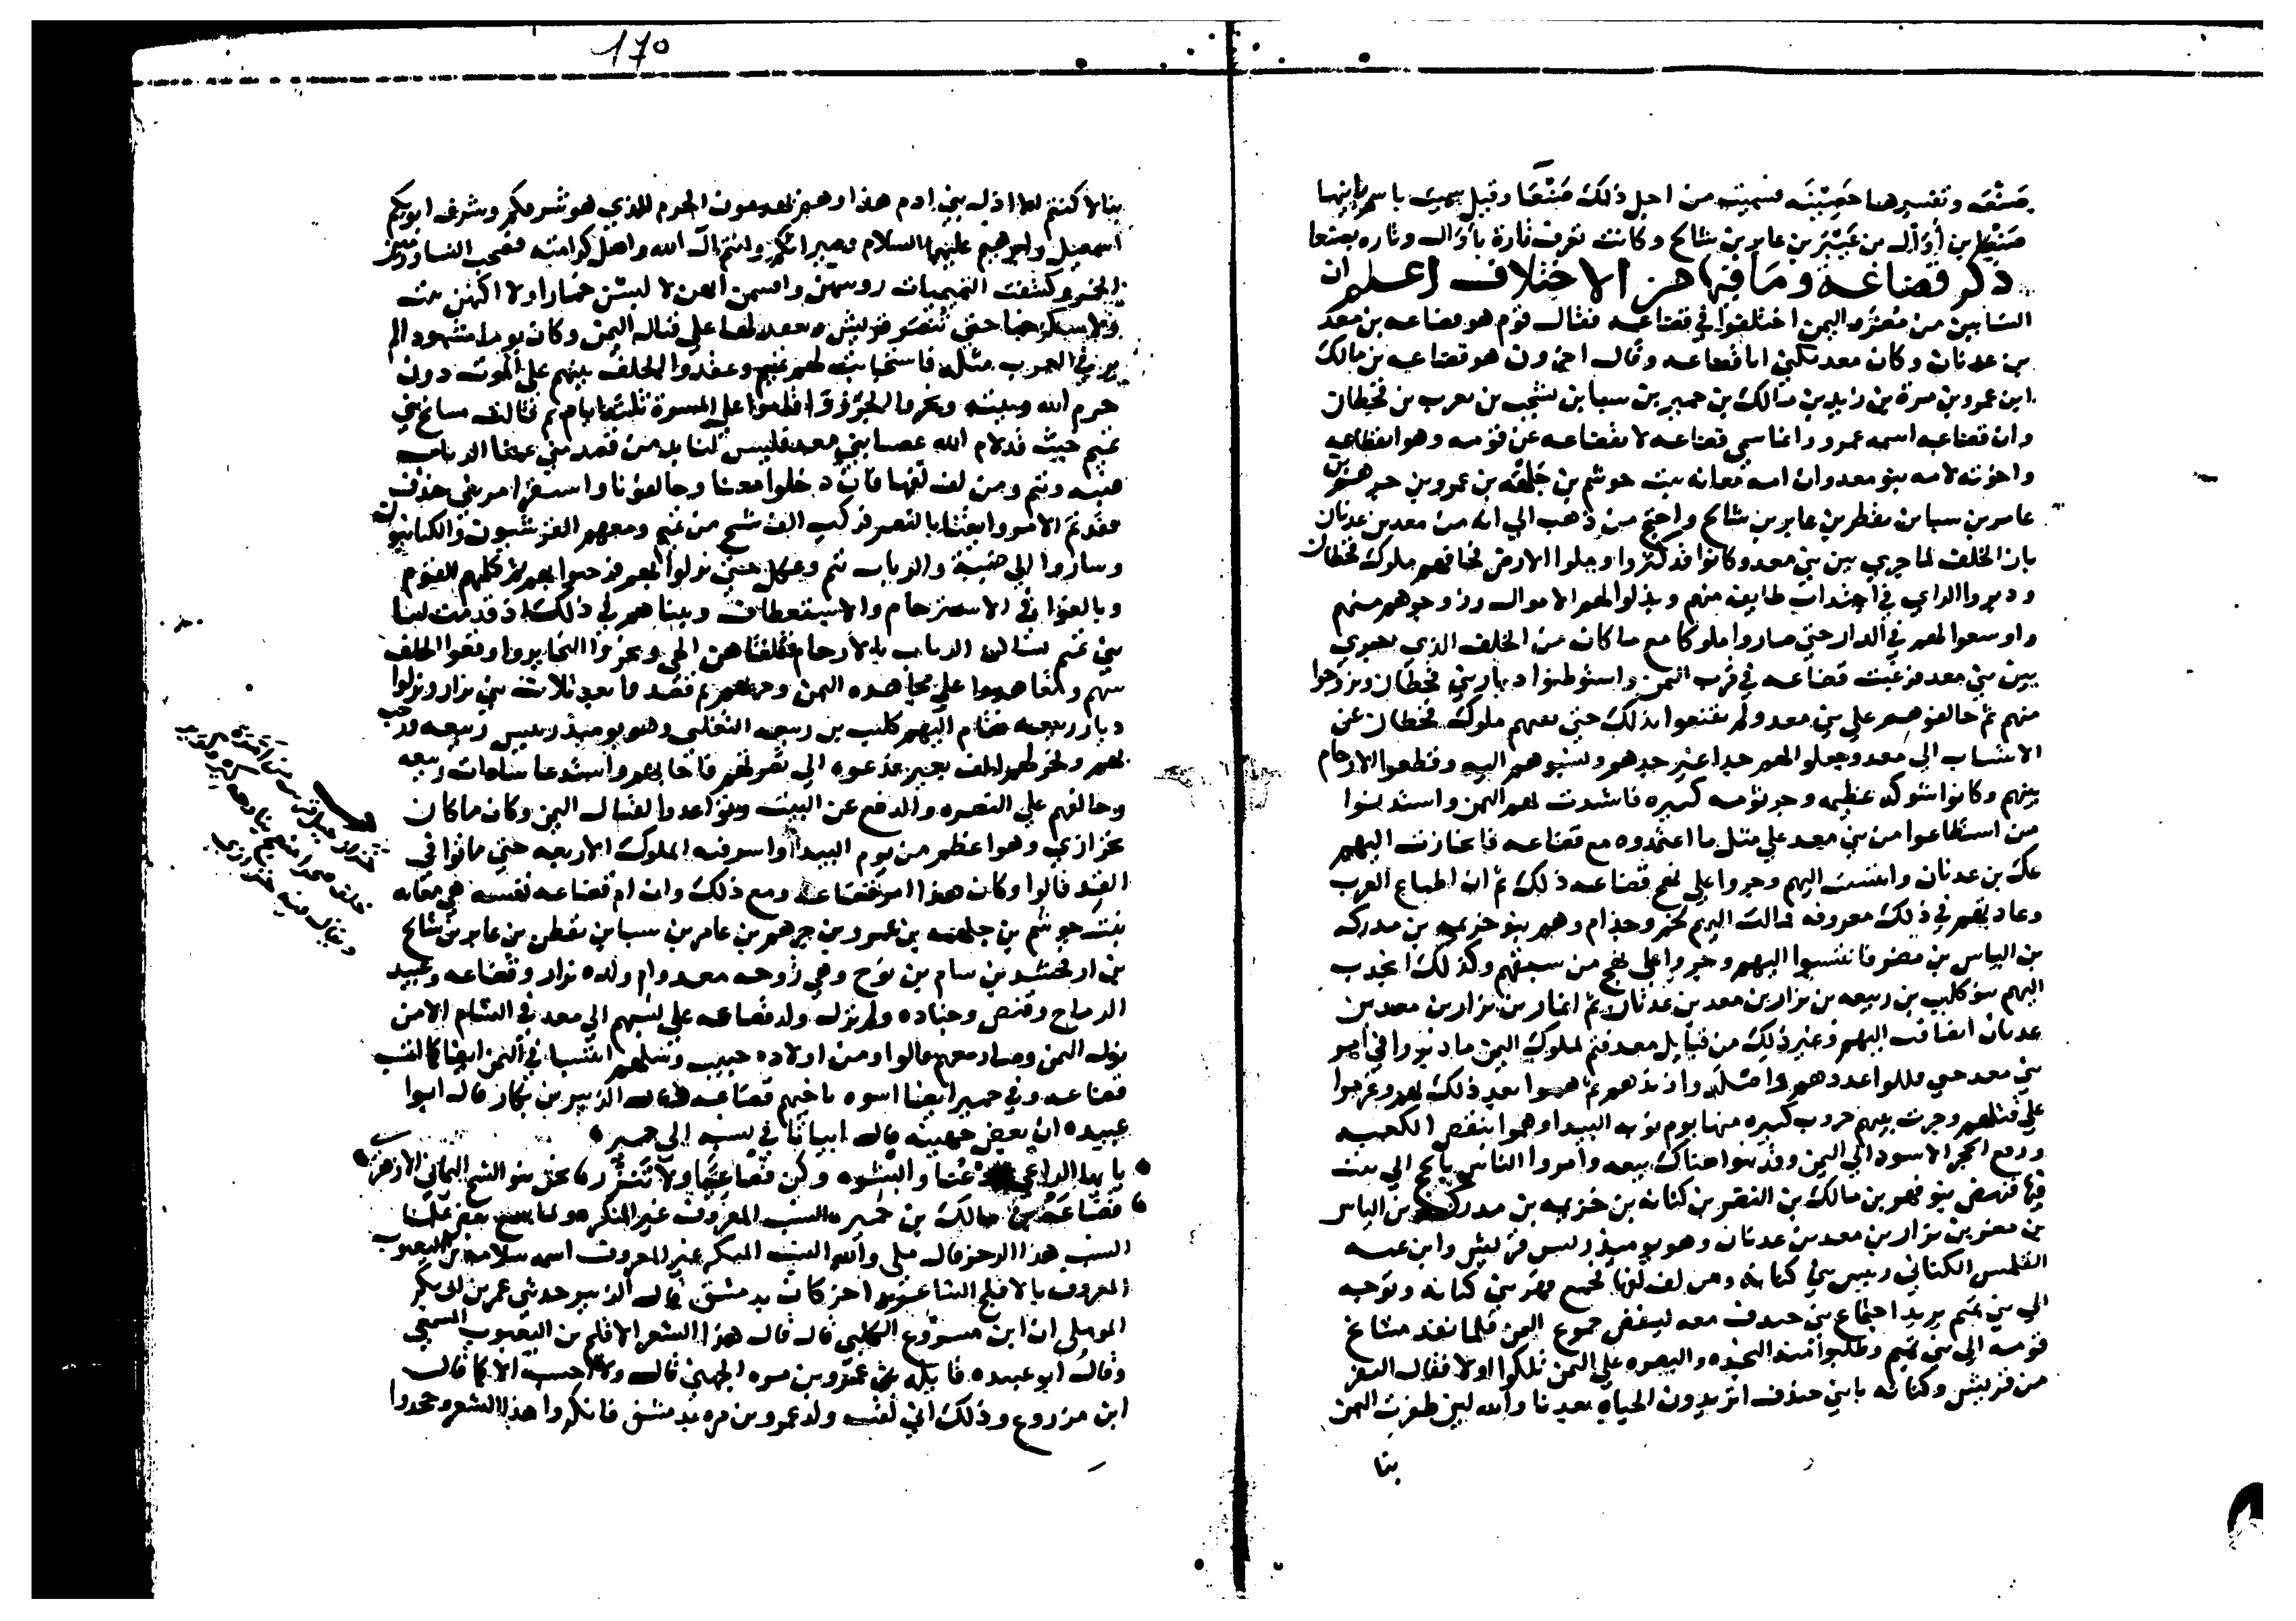 صَنْعَه وتفسيرها حَصِيْنَه فسميت من اجل ذلك صَنْعَا وقيل سميت باسم بانيها
صَنْعا بن أَوَال من عَيْبَر بن عابر بن شالح وكانت تعرف تارة بأوال وتاره بصنعا
ذكر قضاعة وما فيها من الاختلاف اعلم ان
النسابين من مضر واليمن اختلفوا في قضاعه فقال قوم هو قضاعه بن معد
بن عدنان وكان معد يكنى ابا قضاعه وقال اخرون هو قضاعه بن مالك
ابن عمرو بن مرة بن زيد بن مالك بن حمير بن سبا بن يشجب بن يعرب بن قحطان
وان قضاعه اسمه عمرو وانما سمي قضاعه لانقضاعه عن قومه وهو انقطاعه
واخوته لامه بنو معد وان امه معانه بنت جوشم بن جلهه بن عمرو بن جرهم بن
عامر بن سبا بن يقطن بن عابر بن شالح واحتج من ذهب الى انه من معد بن عدنان
بان الخلف لما جرى بين بني معد وكانوا قد كثروا وملوا الارض فخافهم ملوك قحطان
ودبروا الراي في اجتذاب طايفه منهم وبذلوا لهم الاموال وزوجوهم منهم
واوسعوا لهم في الدار حتى صاروا ملوكا مع ما كان من الخلف الذي يجري
بين بني معد فرغبت قضاعه في قرب اليمن واستوطنوا ديار بني قحطان وتزوجوا
منهم ثم حالفوهم على بني معد ولم يقنعوا بذلك حتى نقلهم ملوك قحطان عن
الانتساب الى معد وجعلوا لهم جدا غير جدهم ونسبوهم اليه وقطعوا الارحام
بينهم وكانوا شوكه عظيمه وجرثومه كبيره فاشتدت لهم اليمن واستدنوا
من استطاعوا من بني معد على مثل ما اعتمدوه مع قضاعه فانحازت اليهم
عك بن عدنان وانتسبت اليهم وجروا على نهج قضاعه ذلك ثم ان اطماع العرب
وعادتهم في ذلك معروفه فمالت اليهم لخم وجذام وهم بنو خزيمه بن مدركه
بن الياس بن مضر فانتسبوا اليهم وجروا على نهج من سبقهم وكذلك انجذب
اليهم بنو كليب بن ربيعه بن نزار بن معد بن عدنان ثم انمار بن نزار بن معد بن
عدنان انضافت اليهم وغير ذلك من قبايل معد فتم لملوك اليمن ما دبروا في امر
بني معد حتى قللوا عددهم ثم هموا بعد ذلك بهم وعزموا
على قتلهم وجرت بينهم حروب كبيره منها يوم نوبه البيدا وهموا بنقض الكعبه
ورفع الحجر الاسود الى اليمن وقد بنوا هناك بيعه وامروا الناس بالحج الى بيت
فيها فنهض بنو فهر بن مالك بن النضر بن كنانه بن خزيمه بن مدركه بن الياس
بن مضر بن نزار بن معد بن عدنان وهو يوميذ ريس قريش وابن عمه
القلمس الكناني رييس بني كنانه ومن لف لفها فجمع فهر بني كنانه وتوجه
الى بني تميم يريد اجتماع بني خندف معه ليقض جموع اليمن فلما نفذ مشايخ
قومه الى بني تميم وطلبوا منه النجده والنصره على اليمن تلكوا اولا فقال النفر
من قريش وكنانه يا بني خندف اتريدون الحياه بعدنا والله لين ظفرت اليمن
بنا
170
بنا لا كنتم الا اذل بني ادم هذا وهم يهدمون الحرم الذي هو شرفكم وشرف ابويكم
اسمعيل وابرهيم عليهما السلام وميراثكم وانتم آل الله واهل كرامته فضجت النسا ورمين
الخمر وكشفت التميميات روسهن واقسمن لا لبسن خمارا ولا اكتهن بيت
حتى تنصر قريش على قتال اليمن وكان يوما مشهودا لم
ير في العرب مثله فاستجابت لهم تميم وعقدوا الحلف بينهم على الموت دون
حرم الله وبيته ونحروا الجزر واقاموا على المسرة ثلثة ايام ثم قالت مشايخ بني
تميم حيث قد لام الله عصا بني معد فليس لنا بد من قصد بني عمنا الرباب
ضبه وتيم ومن لف لفها فان دخلوا معنا وحالفونا واستقر امر بني خندف
فقد تم الامر وايقنا بالنصر فركب الف شيخ من تميم ومعهم القرشيون والكنانيون
وساروا الى ضبة والرباب تيم وعكل حتى نزلوا بهم فرحبوا بهم كلهم القوم
وبالغوا في الاسترحام والاستعطاف وبينا هم في ذلك اذ قدمت لسا
بني تميم الرباب بالارحام فتلقاهن الحي ونحروا الجزاير واوقعوا الحلف
بينهم وتعاهدوا على مجاهده اليمن وحربهم ثم قصدوا بعد ثلاث بني نزار ونزلوا
ديار ربيعه فقام اليهم كليب بن ربيعه التغلبي وهو يوميذ رييس ربيعه ورحب
بهم ونحر لهم الف بعير فدعوه الى نصرتهم فاجابهم واستدعا سادات ربيعه
وحالفهم على النصره والدفع عن البيت وتواعدوا لقتال اليمن وكان ما كان
بخزازي وهو اعظم من يوم البيدا واسرفيه الملوك الاربعه حتى ماتوا في
القيد قالوا وكان هذا امر قضاعه ومع ذلك وان ام قضاعه نفسه هي معانه
بنت جوشم بن جلهمه بن عمرو بن جرهم بن عامر بن سبا بن يقطن بن عابر بن شالح
بن ارفخشد بن سام بن نوح وهي زوجه معد وام ولده نزار وقضاعه وعبيد
الرماح وقنص وجناده ولم يزل ولد قضاعه على نسبهم الى معد في الشام الا من
نزل اليمن وصار معهم قالوا ومن اولاده حبيب وسلهم انتسبا في اليمن ايضا كما انتسب
قضاعه وفي حمير ايضا اسوه باخيهم قضاعه قال الزبير بن بكار قال ابوا
عبيده ان بعض جهينه قال ابياتا في نسبه الى حمير
يا ايها الداعي ادعنا وابشر وكن قضاعيا ولا تنزر نحن بنو الشيخ اليماني الازهر
قضاعه بن مالك بن حمير النسب المعروف غير المنكر
النسب هذا الرجز قال بلى والله النسب المنكر غير المعروف اسمه سلامه بن اليعبوب
المعروف بالافلح الشاعر كان بدمشق قال الزبير حدثني عمر بن ابي بكر
الموملي ان ابن مسروع الكلبي قال قال هذا الشعر الافلح بن اليعبوب
وقال ابو عبيده قايله عمرو بن مره الجهني قال ولا احسبه الا كما قال
ابن مزروع وذلك اني لقيت ولد عمرو بن مره بدمشق فانكروا هذا الشعر وجحدوا